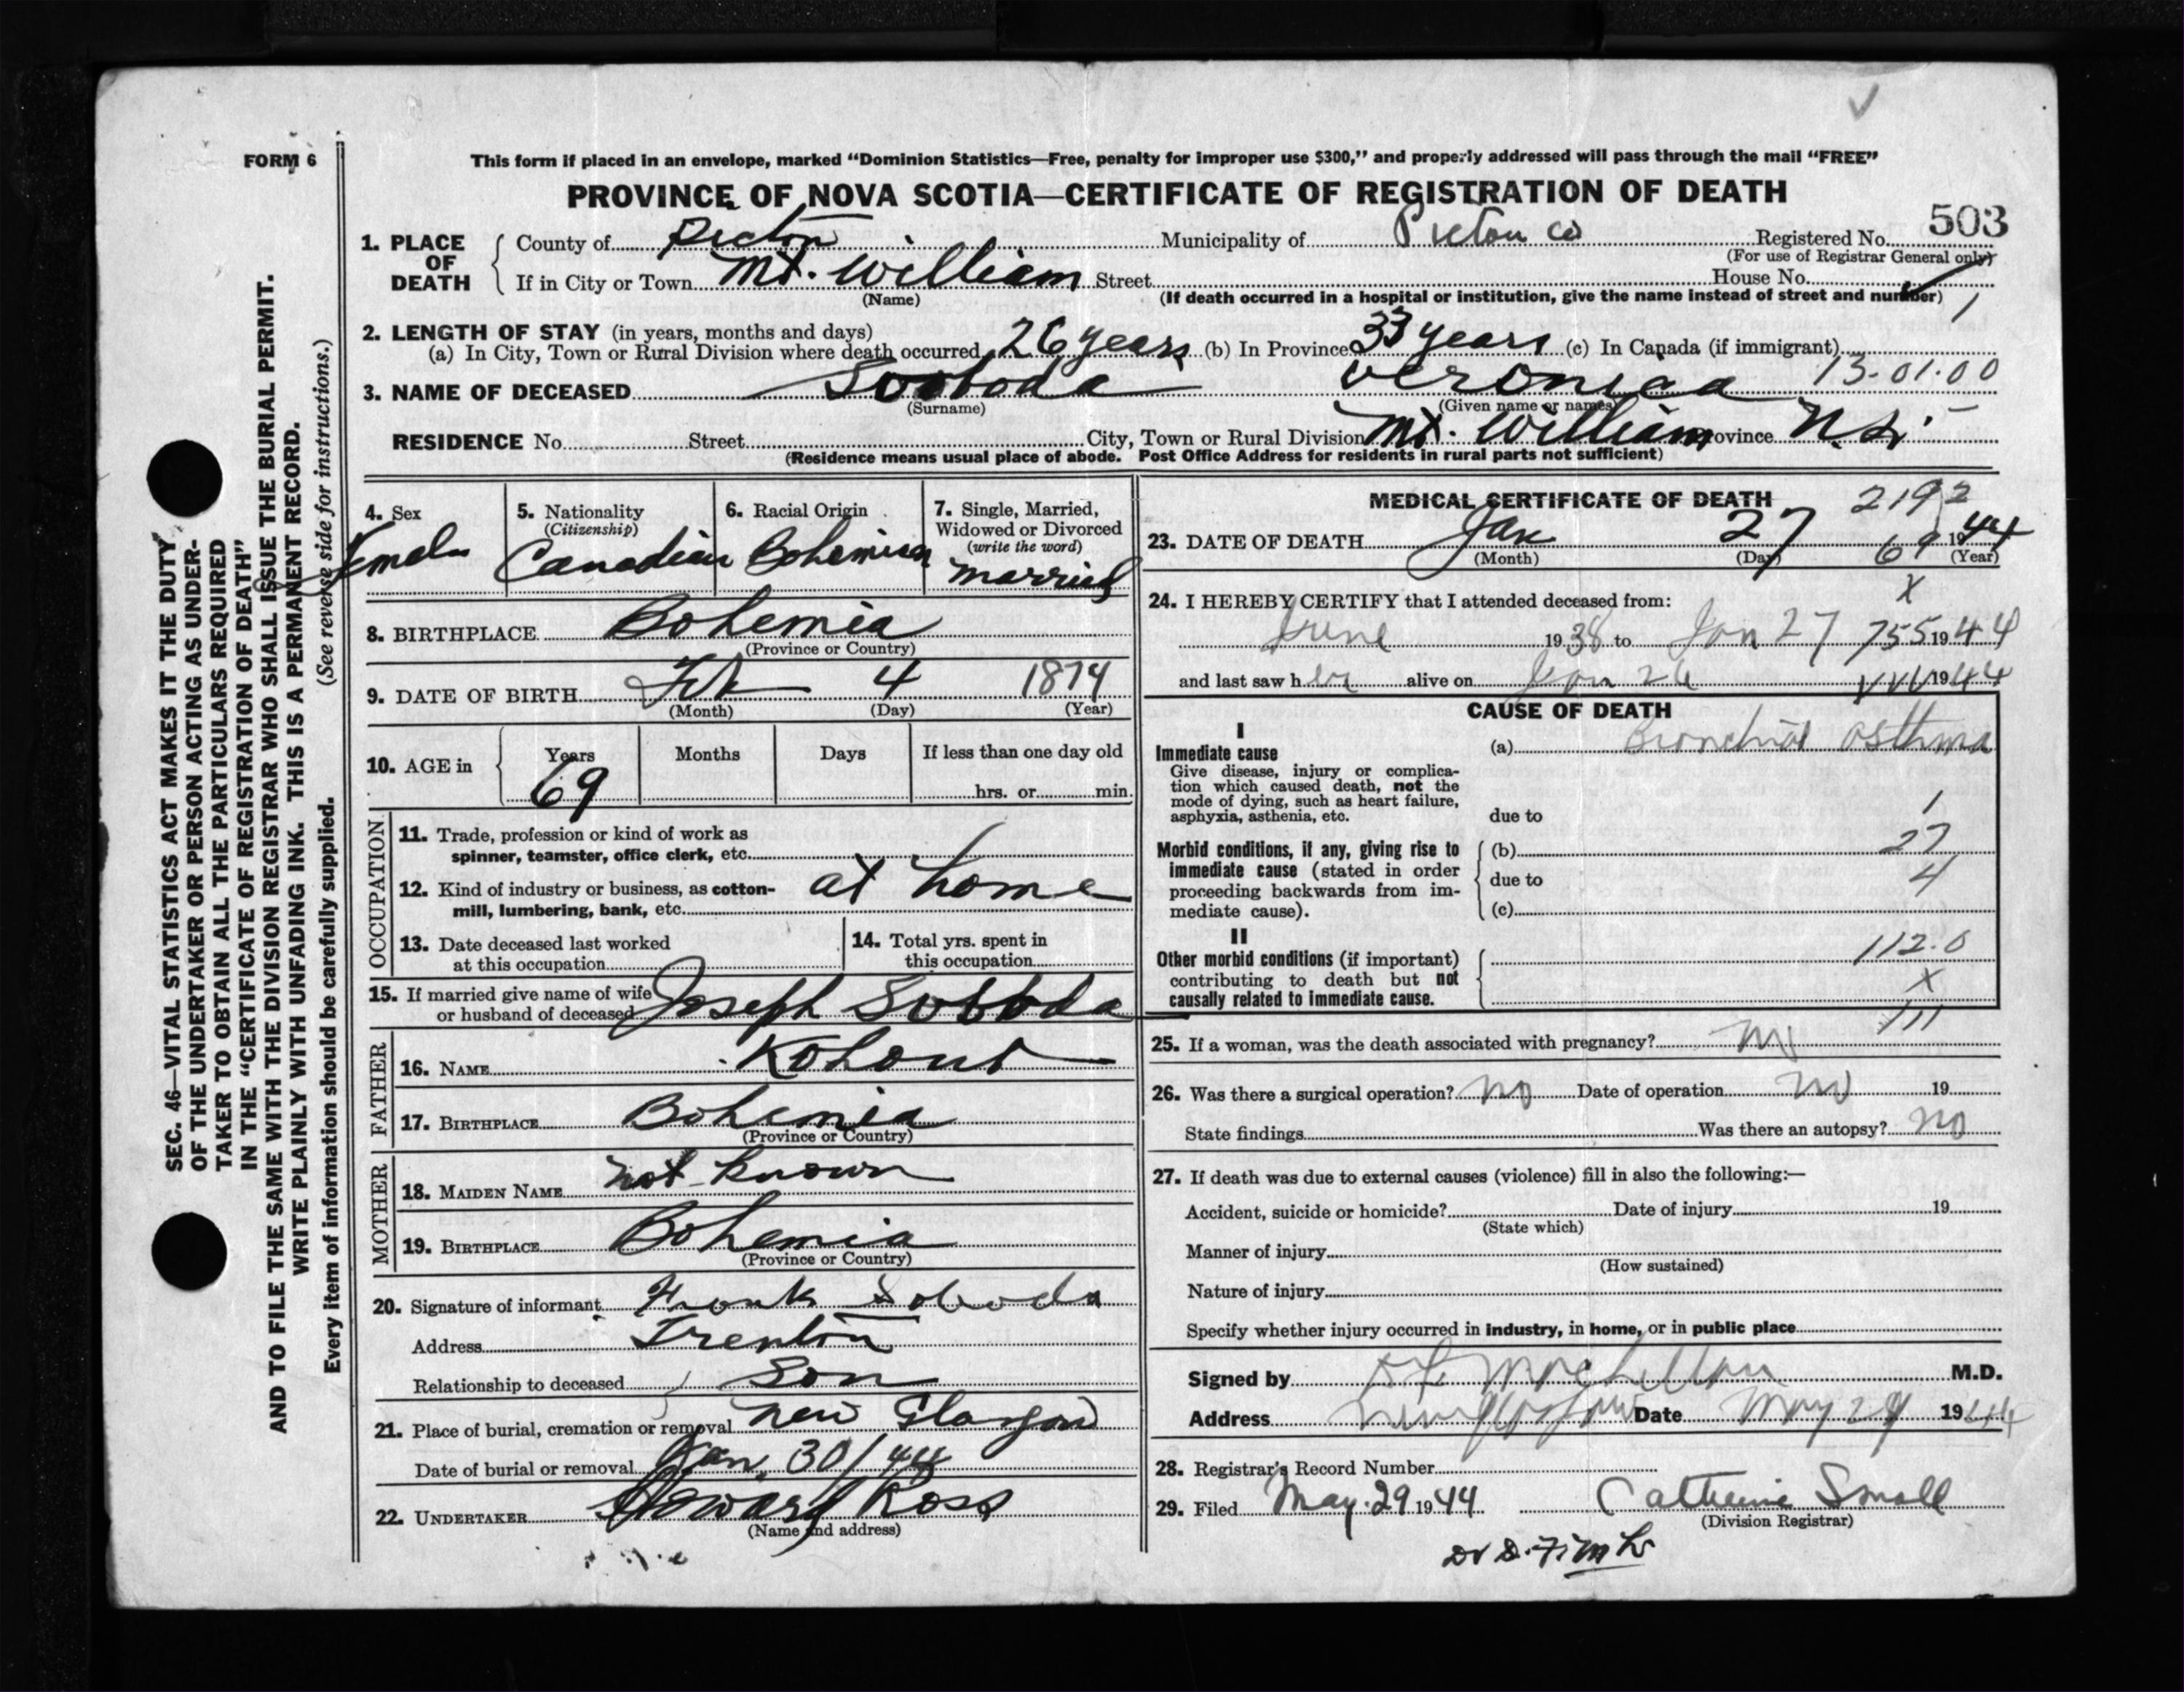 FORM 6
This form if placed in an envelope, marked “Dominion Statistics—Free, penalty for improper use $300,” and properly addressed will pass through the mail “FREE”
PROVINCE OF NOVA SCOTIA—CERTIFICATE OF REGISTRATION OF DEATH
503
1. PLACE OF DEATH
County of Pictou Municipality of Pictou Co Registered No.
(For use of Registrar General only)
If in City or Town Mt. William Street House No.
(Name) (If death occurred in a hospital or institution, give the name instead of street and number)
1
2. LENGTH OF STAY (in years, months and days)
(a) In City, Town or Rural Division where death occurred 26 years (b) In Province 33 years (c) In Canada (if immigrant)
13-01-00
3. NAME OF DECEASED Svoboda Veronica
(Surname) (Given name or names)
RESIDENCE No. Street City, Town or Rural Division Mt. William Province N.S.
(Residence means usual place of abode. Post Office Address for residents in rural parts not sufficient)
4. Sex Female
5. Nationality (Citizenship) Canadian
6. Racial Origin Bohemian
7. Single, Married, Widowed or Divorced (write the word) married
8. BIRTHPLACE Bohemia
(Province or Country)
9. DATE OF BIRTH Feb 4 1874
(Month) (Day) (Year)
10. AGE in Years Months Days If less than one day old
69 hrs. or min.
OCCUPATION
11. Trade, profession or kind of work as
spinner, teamster, office clerk, etc.
12. Kind of industry or business, as cotton-
mill, lumbering, bank, etc. at home
13. Date deceased last worked
at this occupation
14. Total yrs. spent in
this occupation
15. If married give name of wife
or husband of deceased Joseph Soboda
FATHER
16. NAME Kohout
17. BIRTHPLACE Bohemia
(Province or Country)
MOTHER
18. MAIDEN NAME not known
19. BIRTHPLACE Bohemia
(Province or Country)
20. Signature of informant Frank Soboda
Address Trenton
Relationship to deceased Son
21. Place of burial, cremation or removal New Glasgow
Date of burial or removal Jan. 30/44
22. UNDERTAKER Howard Ross
(Name and address)
MEDICAL CERTIFICATE OF DEATH
2192
23. DATE OF DEATH Jan 27 1944
(Month) (Day) (Year)
69
X
24. I HEREBY CERTIFY that I attended deceased from:
June 1938 to Jan 27 755 1944
and last saw her alive on Jan 26 1944
CAUSE OF DEATH
I
Immediate cause (a) Bronchial asthma
Give disease, injury or complica-
tion which caused death, not the
mode of dying, such as heart failure,
asphyxia, asthenia, etc. due to
1
Morbid conditions, if any, giving rise to (b) 27
immediate cause (stated in order due to 4
proceeding backwards from im-
mediate cause). (c)
II
Other morbid conditions (if important) 112.0
contributing to death but not X
causally related to immediate cause.
111
25. If a woman, was the death associated with pregnancy? no
26. Was there a surgical operation? no Date of operation no 19
State findings Was there an autopsy? no
27. If death was due to external causes (violence) fill in also the following:—
Accident, suicide or homicide? Date of injury 19
(State which)
Manner of injury
(How sustained)
Nature of injury
Specify whether injury occurred in industry, in home, or in public place
Signed by M.D.
Address New Glasgow Date May 29 1944
28. Registrar's Record Number
29. Filed May. 29 1944 Catherine Small
(Division Registrar)
SEC. 46—VITAL STATISTICS ACT MAKES IT THE DUTY
OF THE UNDERTAKER OR PERSON ACTING AS UNDER-
TAKER TO OBTAIN ALL THE PARTICULARS REQUIRED
IN THE “CERTIFICATE OF REGISTRATION OF DEATH”
AND TO FILE THE SAME WITH THE DIVISION REGISTRAR WHO SHALL ISSUE THE BURIAL PERMIT.
WRITE PLAINLY WITH UNFADING INK. THIS IS A PERMANENT RECORD.
Every item of information should be carefully supplied. (See reverse side for instructions.)